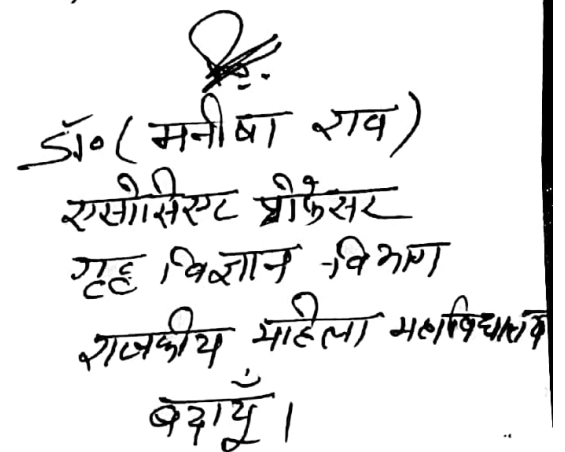 डॉ० (मनीषा राव)
एसोसिएट प्रोफेसर
गृह विज्ञान विभाग
राजकीय महिला महाविद्यालय
बदायूँ।